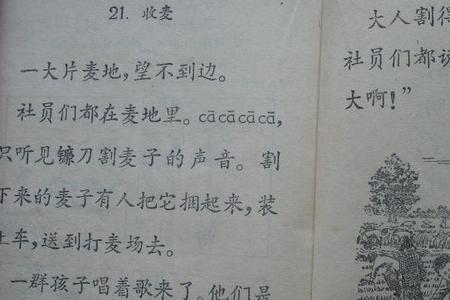 21. 收麦
一大片麦地，望不到边。
社员们都在麦地里。cācācācā，
只听见镰刀割麦子的声音。割
下来的麦子有人把它捆起来，装
上车，送到打麦场去。
一群孩子唱着歌来了。他们是
大人割得
社员们都说
大啊！”